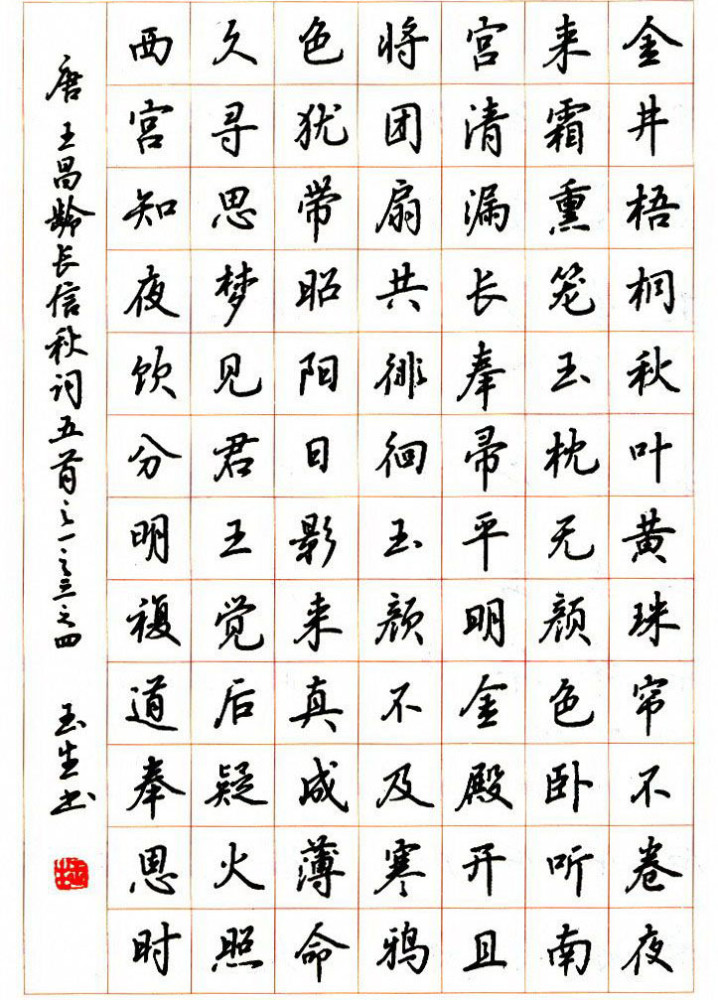 金井梧桐秋叶黄珠帘不卷夜
来霜熏笼玉枕无颜色卧听南
宫清漏长奉帚平明金殿开且
将团扇共徘徊玉颜不及寒鸦
色犹带昭阳日影来真成薄命
久寻思梦见君王觉后疑火照
西宫知夜饮分明複道奉恩时
唐王昌龄长信秋词五首之一之三之四
玉生书